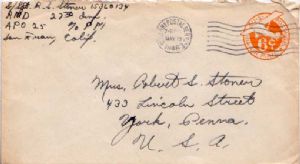 S/Sgt. R. S. Stoner 15360134
AMD 27th Inf.
APO 25 % P.M.
San Fran, Calif.
U.S. POSTAL SERVICE
MAY
1946
6¢
Mrs. Robert S. Stoner
433 Lincoln Street
York, Penna.
U. S. A.